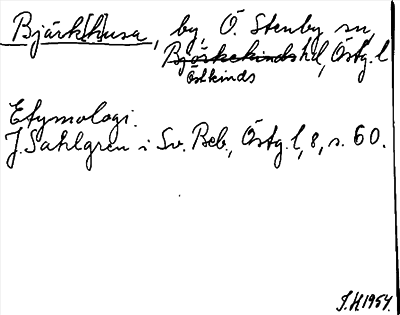 Bjärk[h]usa, by, Ö. Stenby sn,
Björkekinds hd, Östg. l
Östkinds
Etymologi.
J. Sahlgren i Sv. Beb., Östg. l, 8, s. 60.
I.H. 1954.